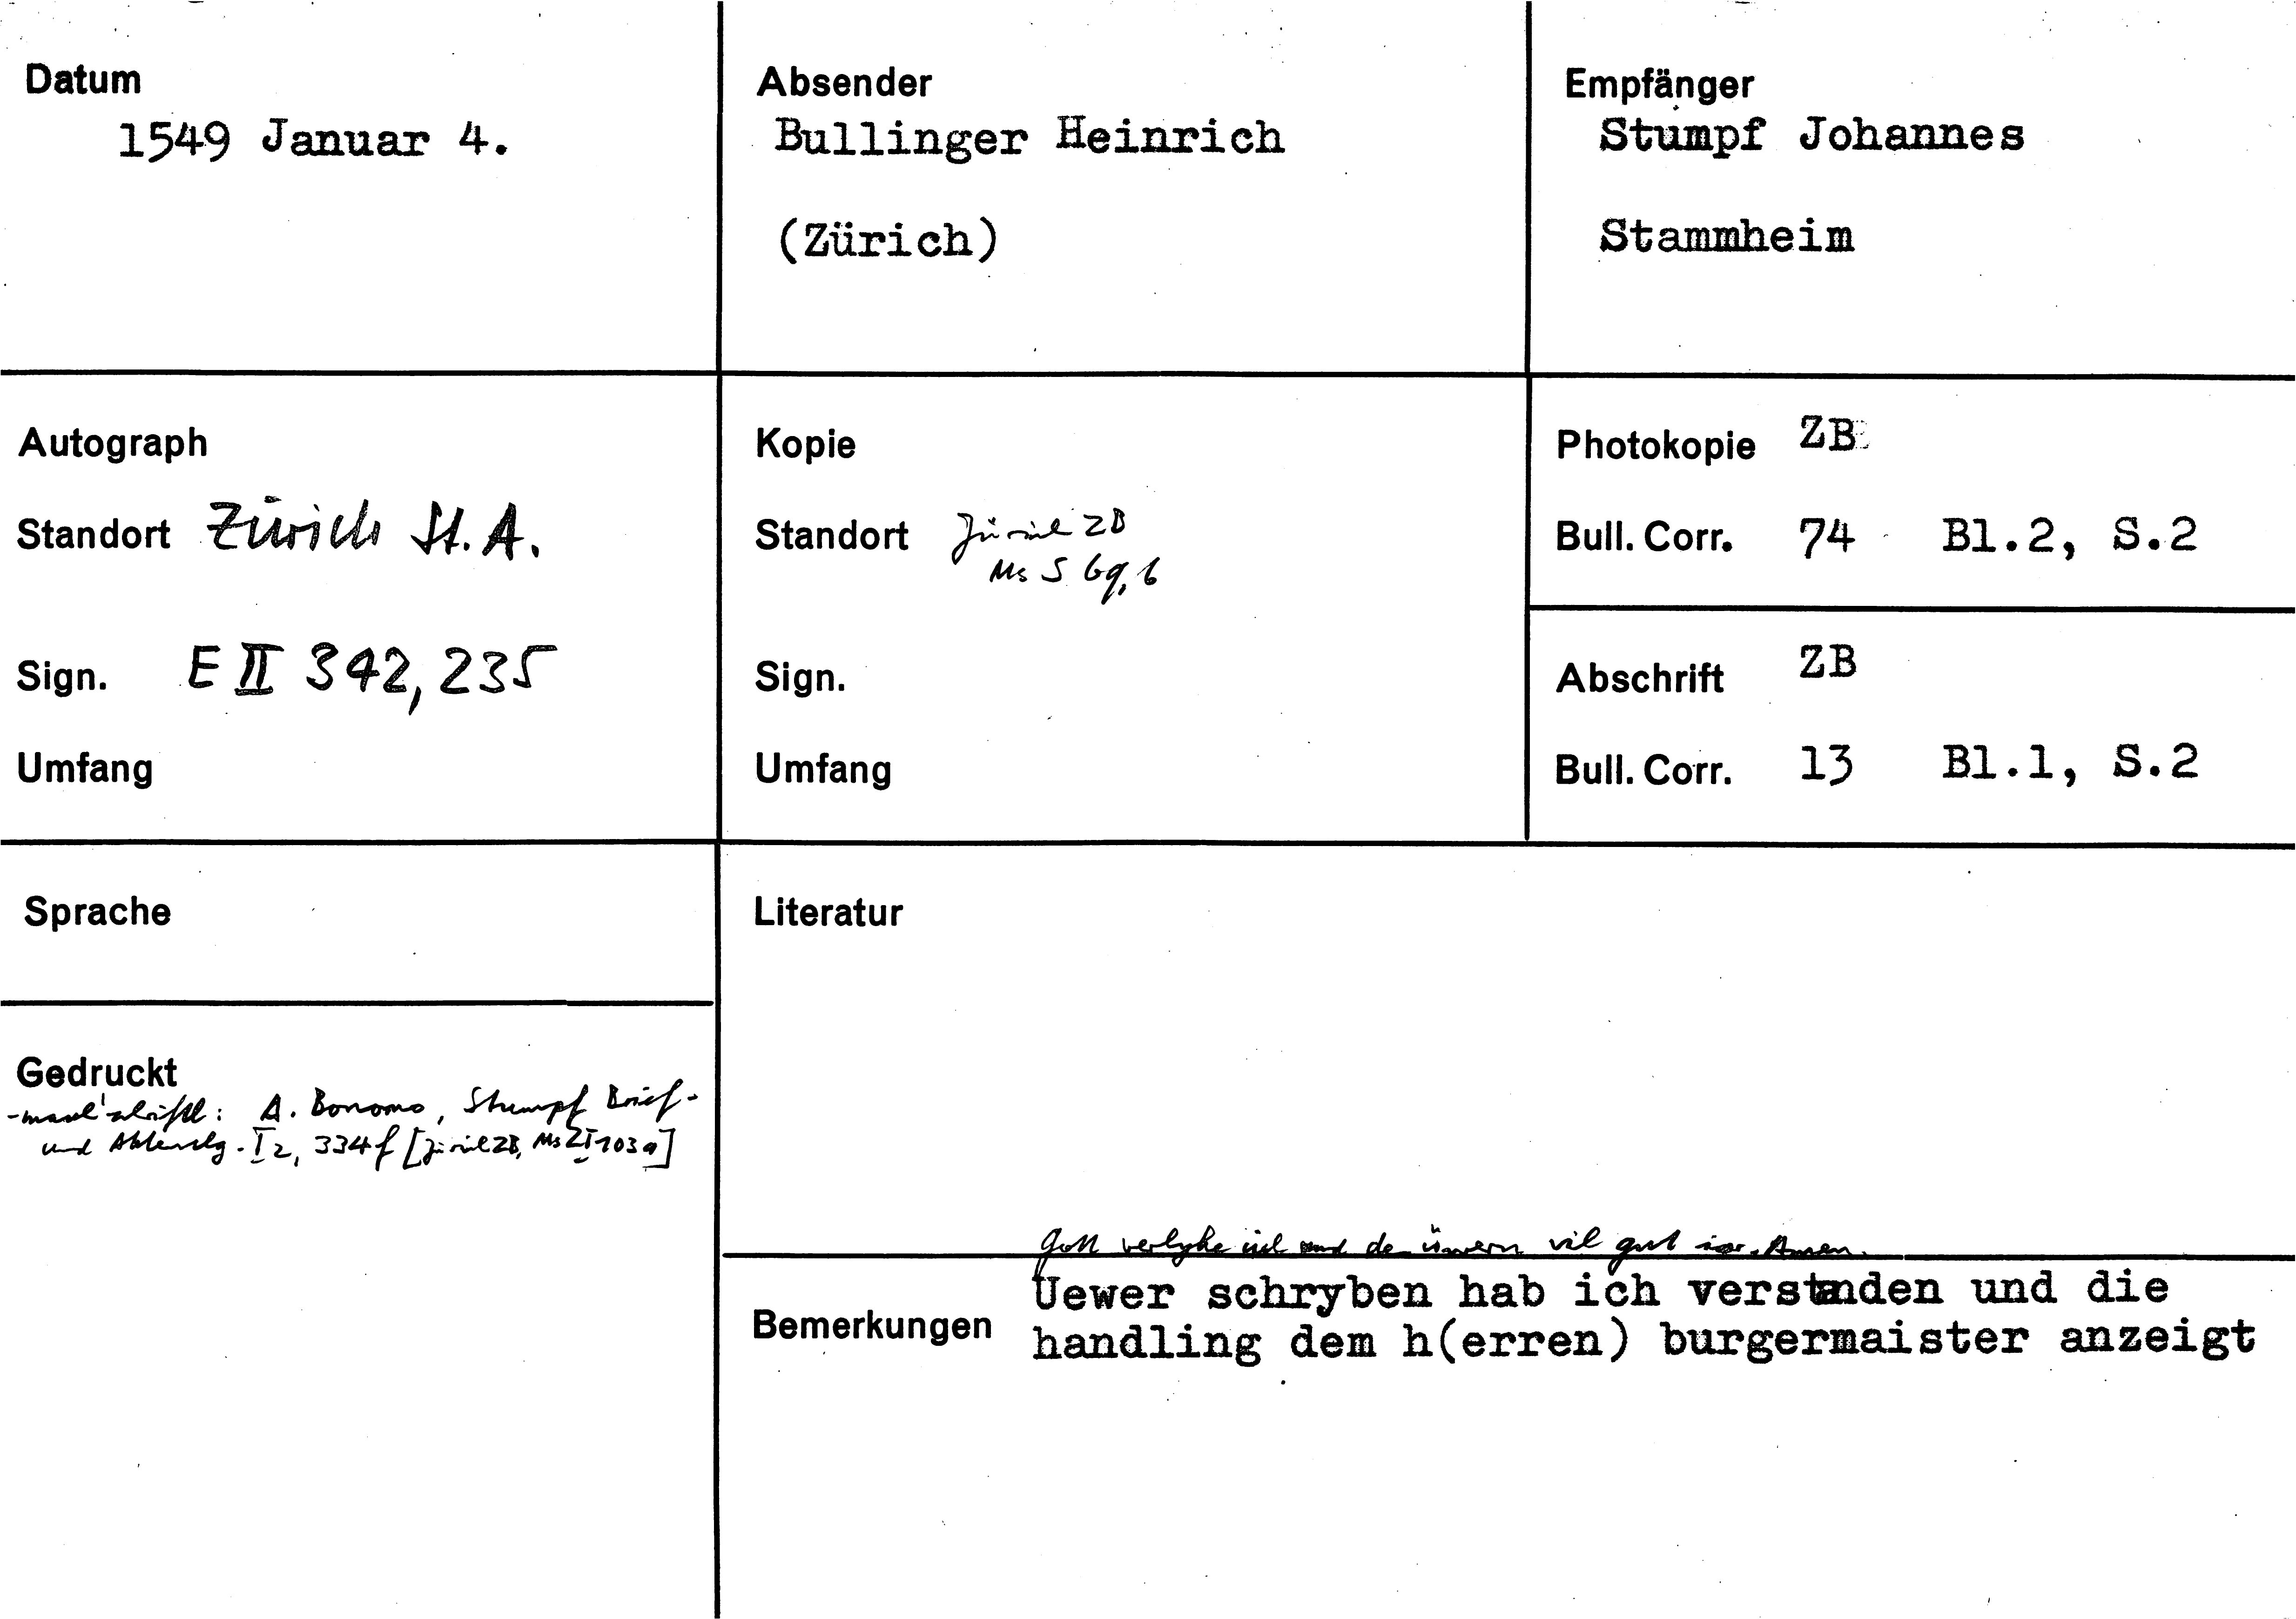 Datum
1549 Januar 4.
Absender
Bullinger Heinrich
(Zürich)
Empfänger
Stumpf Johannes
Stammheim
Autograph
Standort Zürich St.A.
Sign. E II 342,235
Umfang
Kopie
Standort Zürich ZB
Ms S 69, 6
Sign.
Umfang
Photokopie ZB
Bull. Corr. 74 Bl.2, S.2
Abschrift ZB
Bull. Corr. 13 Bl.1, S.2
Sprache
Gedruckt
-masch'schriftl: A. Bonomo, Stumpf Brief-
und Aktenslg. I 2, 334f [Zürich ZB, Ms Z I 103a]
Literatur
Gott verlyhe üch und den üwern vil gut iar. Amen.
Bemerkungen
Uewer schryben hab ich verstanden und die
handling dem h(erren) burgermaister anzeigt